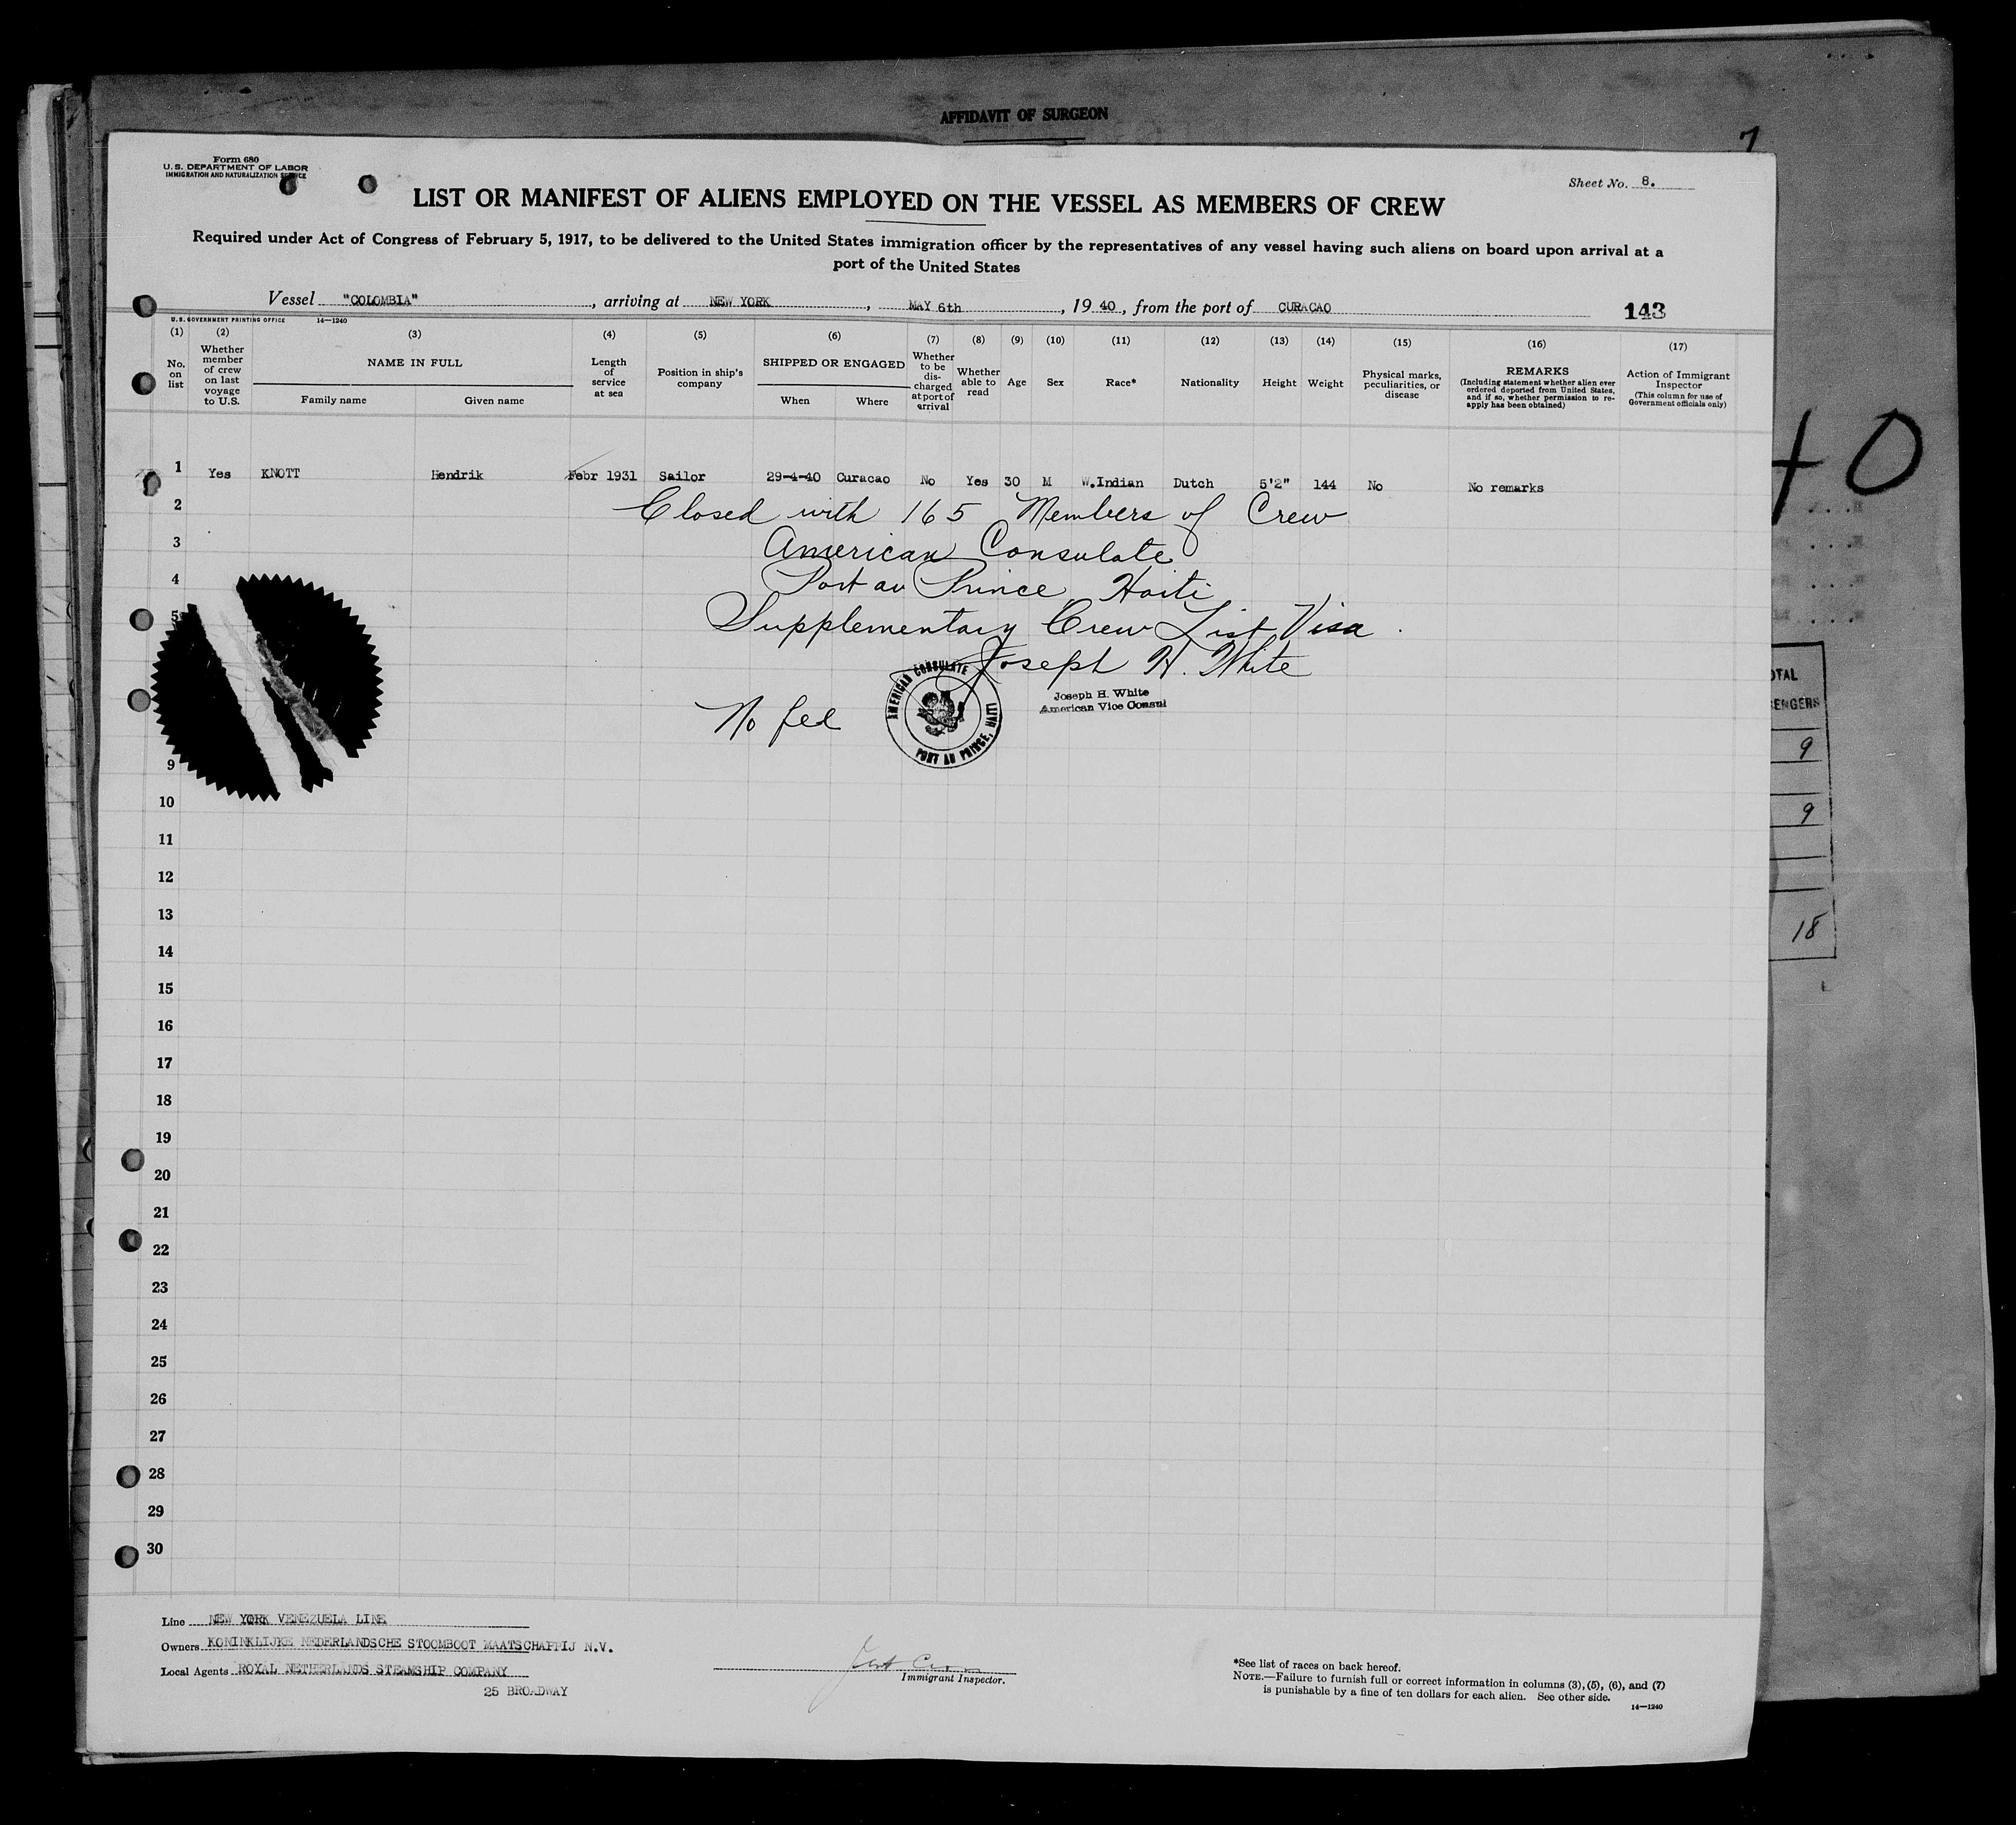 AFFIDAVIT OF SURGEON
7
Form 680
U.S. DEPARTMENT OF LABOR
IMMIGRATION AND NATURALIZATION SERVICE
Sheet No. 8.
LIST OR MANIFEST OF ALIENS EMPLOYED ON THE VESSEL AS MEMBERS OF CREW
Required under Act of Congress of February 5, 1917, to be delivered to the United States immigration officer by the representatives of any vessel having such aliens on board upon arrival at a
port of the United States
Vessel "COLOMBIA", arriving at NEW YORK, MAY 6th, 1940, from the port of CURACAO
143
U.S. GOVERNMENT PRINTING OFFICE 14—1240
(1) (2) (3) (4) (5) (6) (7) (8) (9) (10) (11) (12) (13) (14) (15) (16) (17)
No. on list
Whether member of crew on last voyage to U.S.
NAME IN FULL
Family name Given name
Length of service at sea
Position in ship's company
SHIPPED OR ENGAGED
When Where
Whether to be discharged at port of arrival
Whether able to read
Age
Sex
Race*
Nationality
Height
Weight
Physical marks, peculiarities, or disease
REMARKS
(Including statement whether alien ever ordered deported from United States, and if so, whether permission to re-apply has been obtained)
Action of Immigrant Inspector
(This column for use of Government officials only)
1 Yes KNOTT Hendrik Febr 1931 Sailor 29-4-40 Curacao No Yes 30 M W.Indian Dutch 5'2" 144 No No remarks
2 Closed with 165 Members of Crew
3 American Consulate
4 Port au Prince, Haiti
5 Supplementary Crew List Visa.
Joseph H. White
Joseph H. White
American Vice Consul
No fee
AMERICAN CONSULATE
PORT AU PRINCE, HAITI
9
10
11
12
13
14
15
16
17
18
19
20
21
22
23
24
25
26
27
28
29
30
40
TOTAL
PASSENGERS
9
9
18
Line NEW YORK VENEZUELA LINE
Owners KONINKLIJKE NEDERLANDSCHE STOOMBOOT MAATSCHAPPIJ N.V.
Local Agents ROYAL NETHERLANDS STEAMSHIP COMPANY
25 BROADWAY
Immigrant Inspector.
*See list of races on back hereof.
NOTE.—Failure to furnish full or correct information in columns (3), (5), (6), and (7)
is punishable by a fine of ten dollars for each alien. See other side.
14—1240